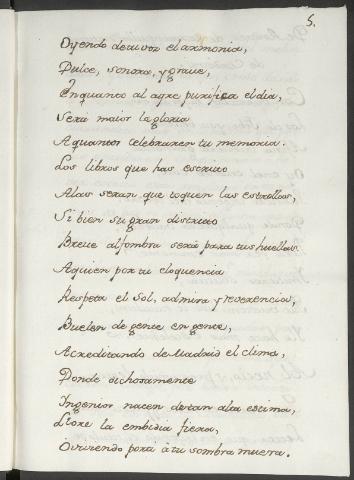 5.
Oyendo de tu voz el armonia,
Dulce, sonora, y graue,
Enquanto al ayre purifica el dia,
Será maior la gloria
Aquantos celebraren tu memoria.
Los libros que has escrito
Alas seran que toquen las estrellas,
Si bien su gran distrito
Breue alfombra será para tus huellas.
Aquien por tu eloquencia
Respeta el Sol, admira y reverencia,
Buelen de gente en gente,
Acreditando de Madrid el clima,
Donde dichosamente
Ingenios nacen de tan alta estima,
Llore la embidia fiera,
O viviendo por ti a tu sombra muera.